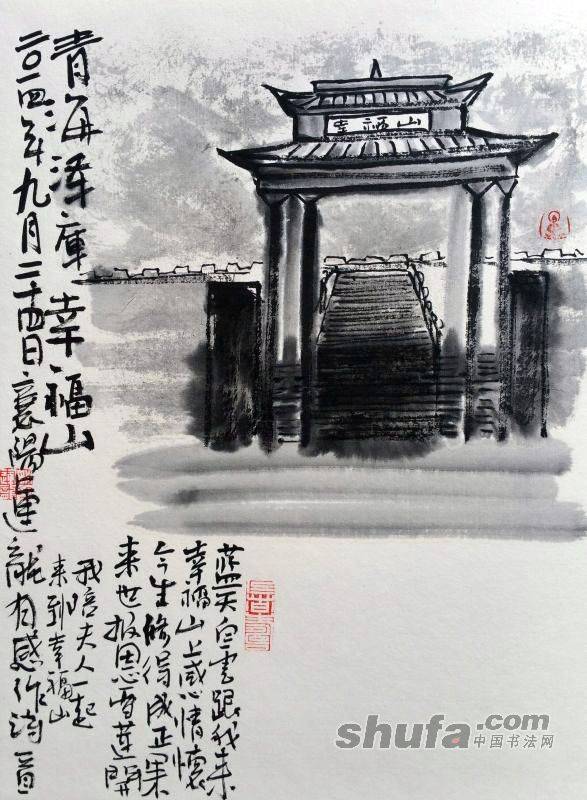 幸福山
青海泽库幸福山
二〇一四年九月二十四日襄陽運龍有感作诗一首
蓝天白雲跟我来
幸福山上感情懷
今生修得成正果
来世报恩雪莲開
我陪夫人一起
来到幸福山
shufa.com
中国书法网